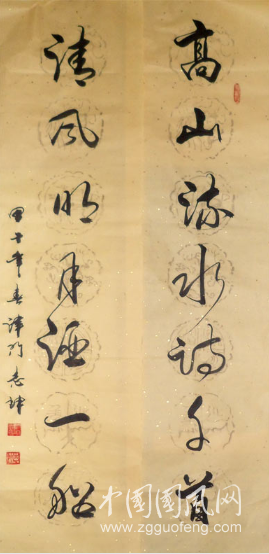 高山流水诗千首
清风明月酒一船
甲午年春津门志坤
中国国风网
www.zgguofeng.com